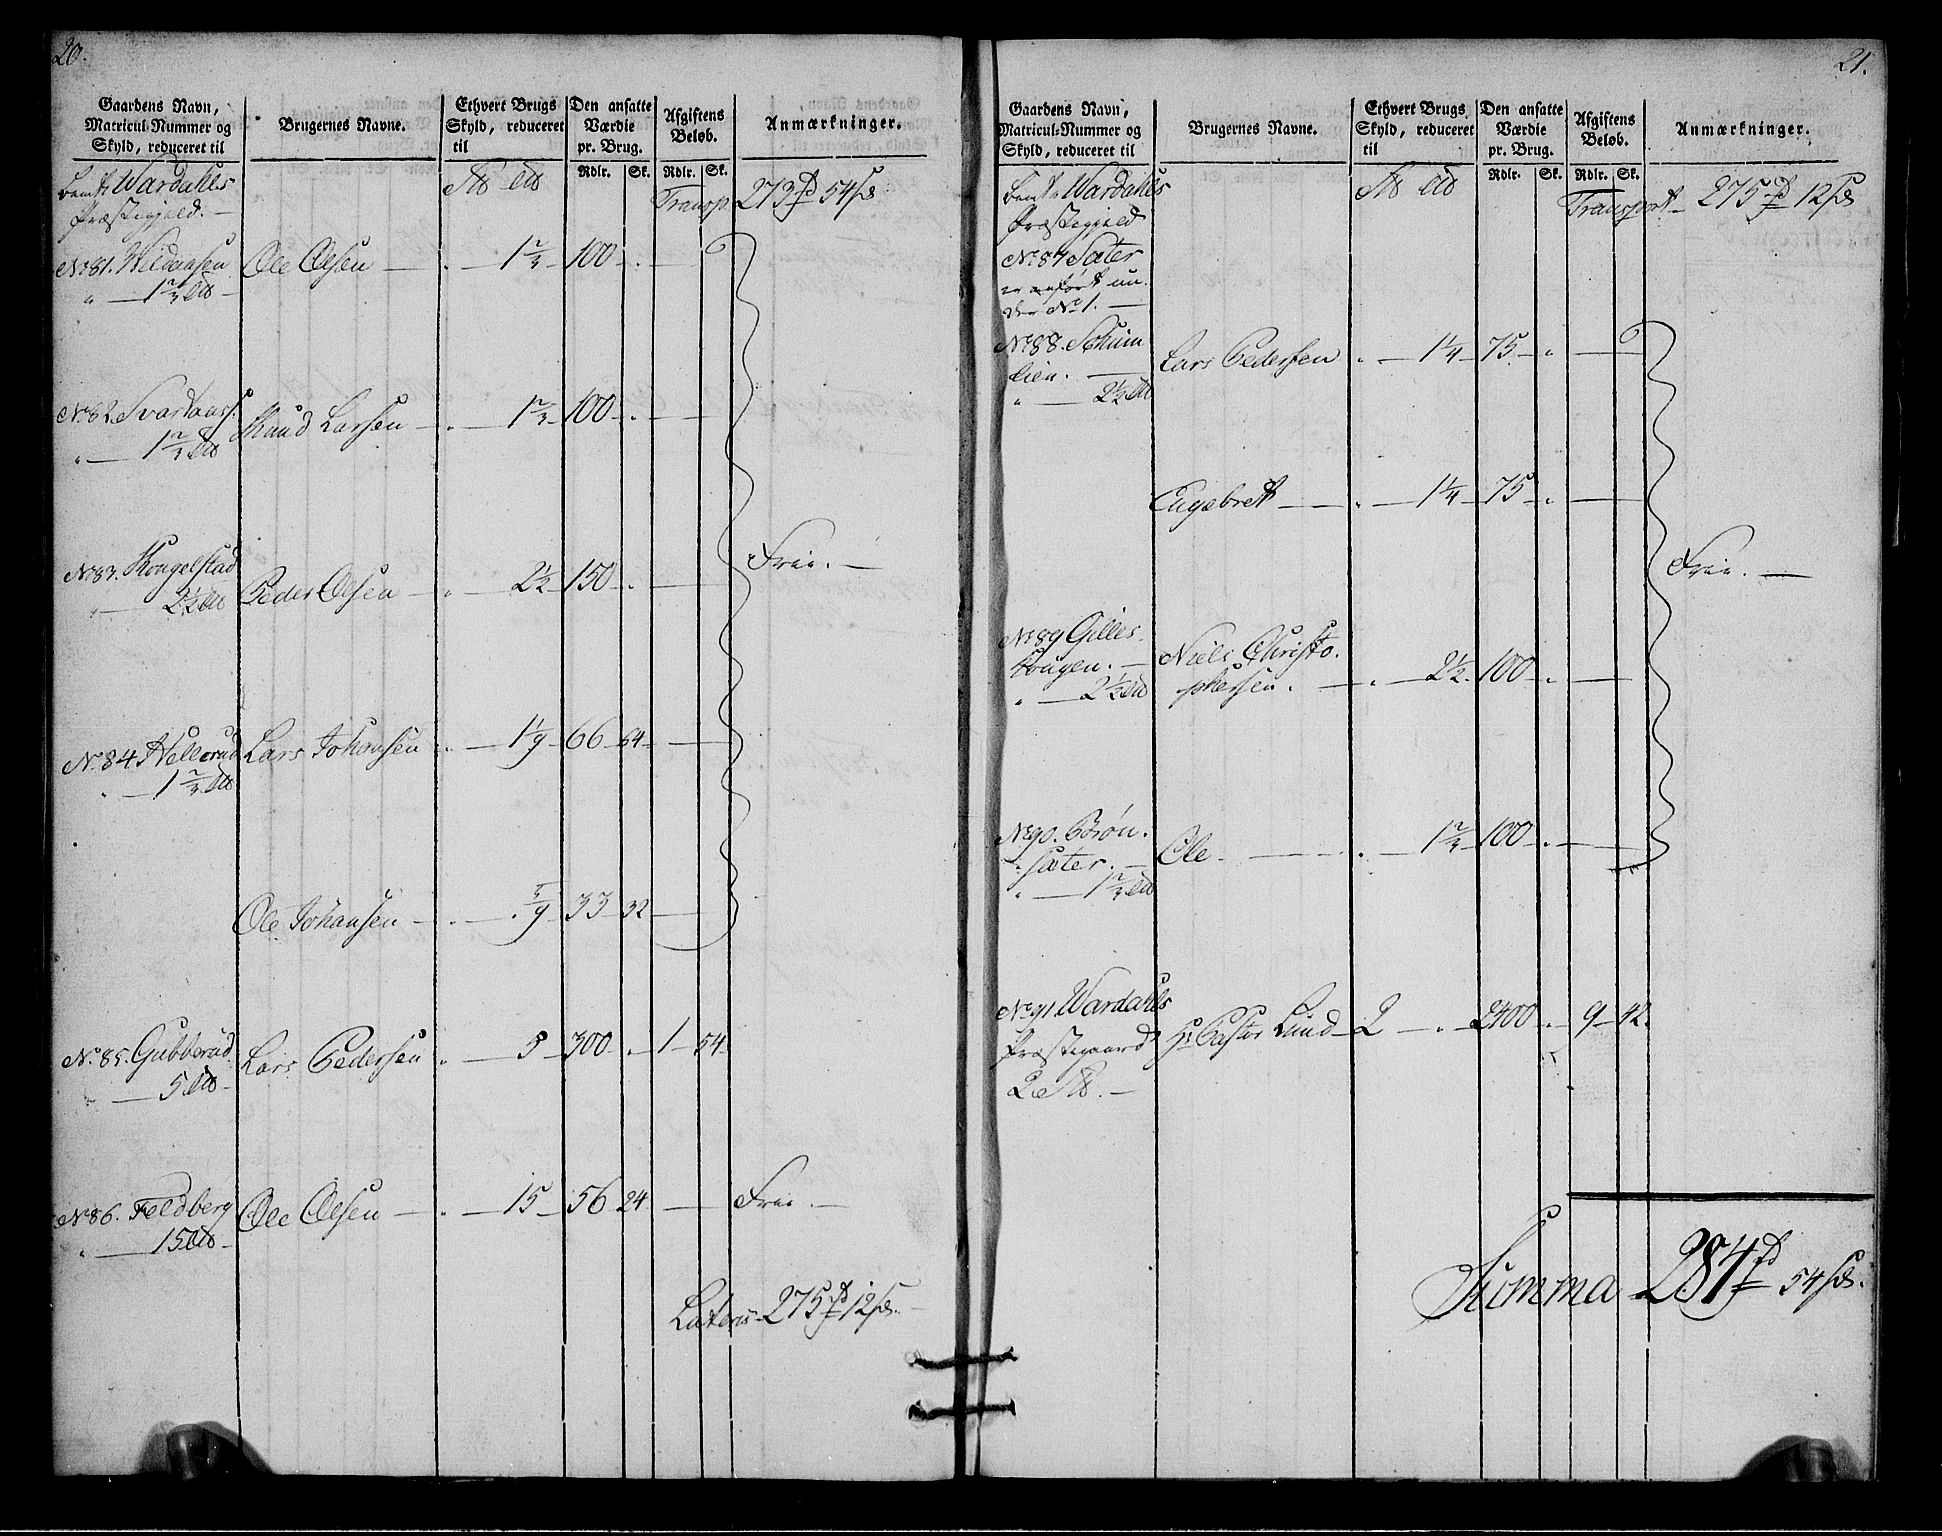 20.
Gaardens Navn,
Matricul-Nummer og
Skyld, reduceret til
Brugernes Navne.
Ethvert Brugs
Skyld, reduceret
til
Den ansatte
Værdie
pr. Brug.
Rdlr. Sk.
Afgiftens
Beløb.
Rdlr. Sk.
Anmærkninger.
Wardahls
Præstegjeld.
Transp. 273 54
No 81. Ole Olsen 1 2/3 100
1 2/3
No 82 Svartaas Knud Larsen 1 2/3 100
1 2/3
No 83. Kongelstad
Peder Olsen 2½ 150
2½
Frie.
No 84 Hellerud Lars Johansen 1 1/9 66 64
1 2/3
Ole Johansen 5/9 33 32
No 85. Gubberud Lars Pedersen 5 300 1 54
5
No 86. Feldberg Ole Olsen 15 56 24 Frie.
15
Lateris 275 12
21.
Gaardens Navn,
Matricul-Nummer og
Skyld, reduceret til
Brugernes Navne.
Ethvert Brugs
Skyld, reduceret
til
Den ansatte
Værdie
pr. Brug.
Rdlr. Sk.
Afgiftens
Beløb.
Rdlr. Sk.
Anmærkninger.
Wardahls
Præstegjeld
Transport 275 12
No 87 Sæter
er anført un-
der No 1.
No 88. Schum
lien. Lars Pedersen 1¼ 75
2½
Engebret 1¼ 75
Frie.
No 89 Gilles
hougen. Niels Christo-
phersen. 2½ 100
2½
No 90. Brøn-
sæter. Ole 1 2/3 100
1 2/3
No 91 Wardahls
Præstegaard Hr Pastor Lund 2 2400 9 42.
2
Summa 284 54